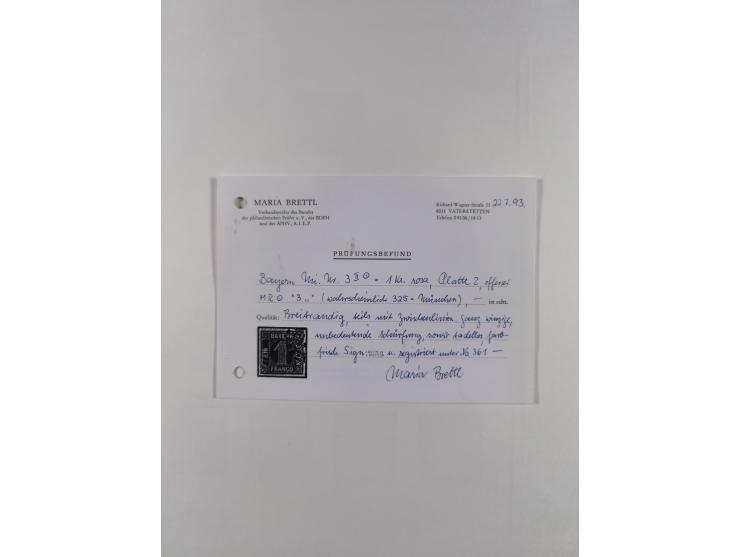 MARIA BRETTL
Verbandsprüfer des Bundes
der philatelistischen Prüfer e. V., des BDPH
und der APHV, A.I.E.P.
Richard-Wagner-Straße 31 22.7.93.
8011 VATERSTETTEN
Telefon
PRÜFUNGSBEFUND
Bayern Mi. Nr. 3 II ⊙ - 1 Kr. rosa, Platte 2, offener
MR ⊙ "3.." (wahrscheinlich 325 = München), — ist echt.
Qualität: Breitrandig, teils mit Zwischenlinien, ganz winzige,
unbedeutende Schürfung, sonst tadellos, farb-
frisch. Sign. u. registriert unter № 361 —
Maria Brettl
BAYERN
1
FRANCO